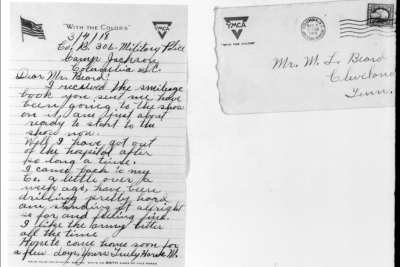 "WITH THE COLORS"
YMCA
3/4/18
Co. B. 306. Military Police
Camp Jackson
Columbia S.C.
Dear Mr. Beard:
I received the smileage
book you sent me, have
been going to the show
on it, am just about
ready to start to the
show now.
Well I have got out
of the hospital after
so long a time.
I came back to my
Co. a little over a
week ago, have been
drilling pretty hard
am standing it alright
so far and feeling fine.
I like the army better
all the time
Hope to come home soon for
a few days, Yours Truly
YMCA
"WITH THE COLORS"
Mr. M. L. Beard
Cleveland
Tenn.